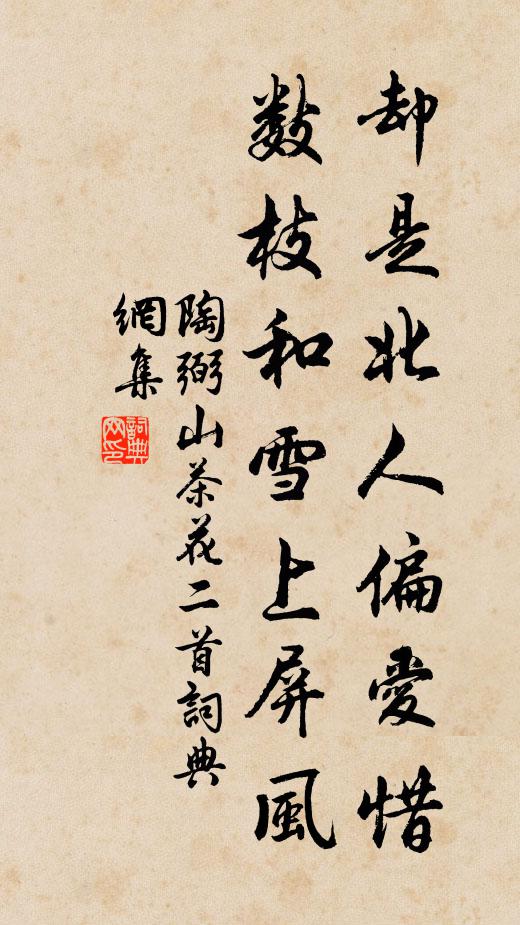 却是北人偏愛惜
数枝和雪上屏風
陶弼山茶花二首詞典
網集
詞典
网印